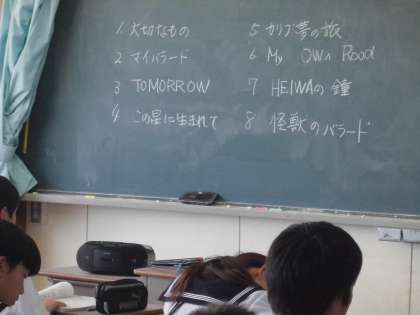 1 大切なもの
2 マイバラード
3 TOMORROW
4 この星に生まれて
5 カリブ夢の旅
6 My OWn Road
7 HEIWAの鐘
8 怪獣のバラード